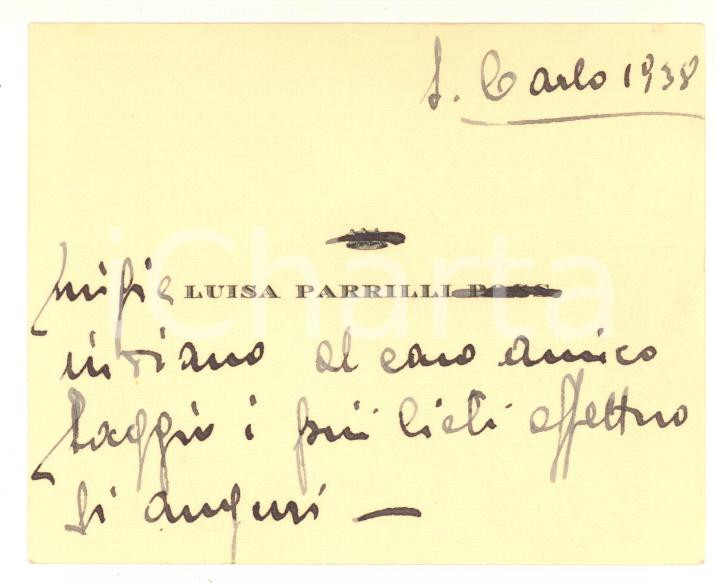 S. Carlo 1938
LUISA PARRILLI ROSS
inviano al caro amico
Baggio i più lieti affettuo
si auguri —
iCharta